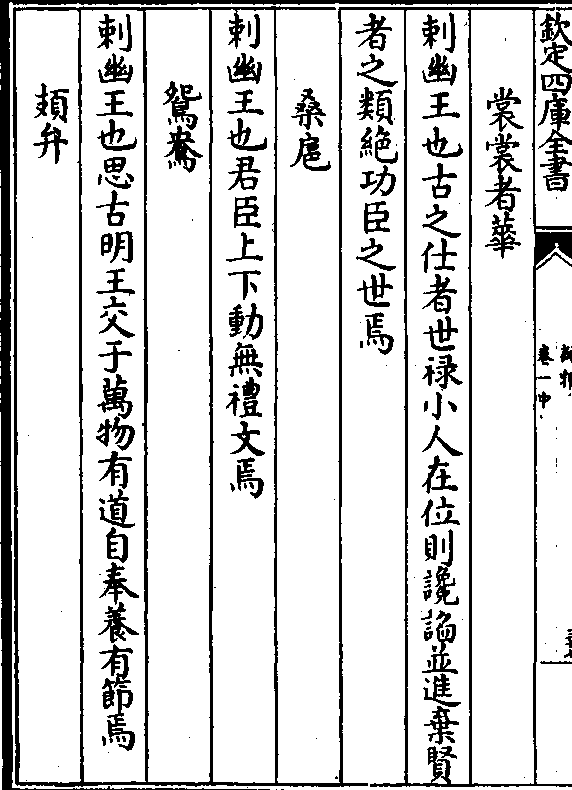 欽定四庫全書
卷一中
裳裳者華
刺幽王也古之仕者世禄小人在位則讒謟並進棄賢
者之類絶功臣之世焉
桑扈
刺幽王也君臣上下動無禮文焉
鴛鴦
刺幽王也思古明王交于萬物有道自奉養有節焉
頍弁